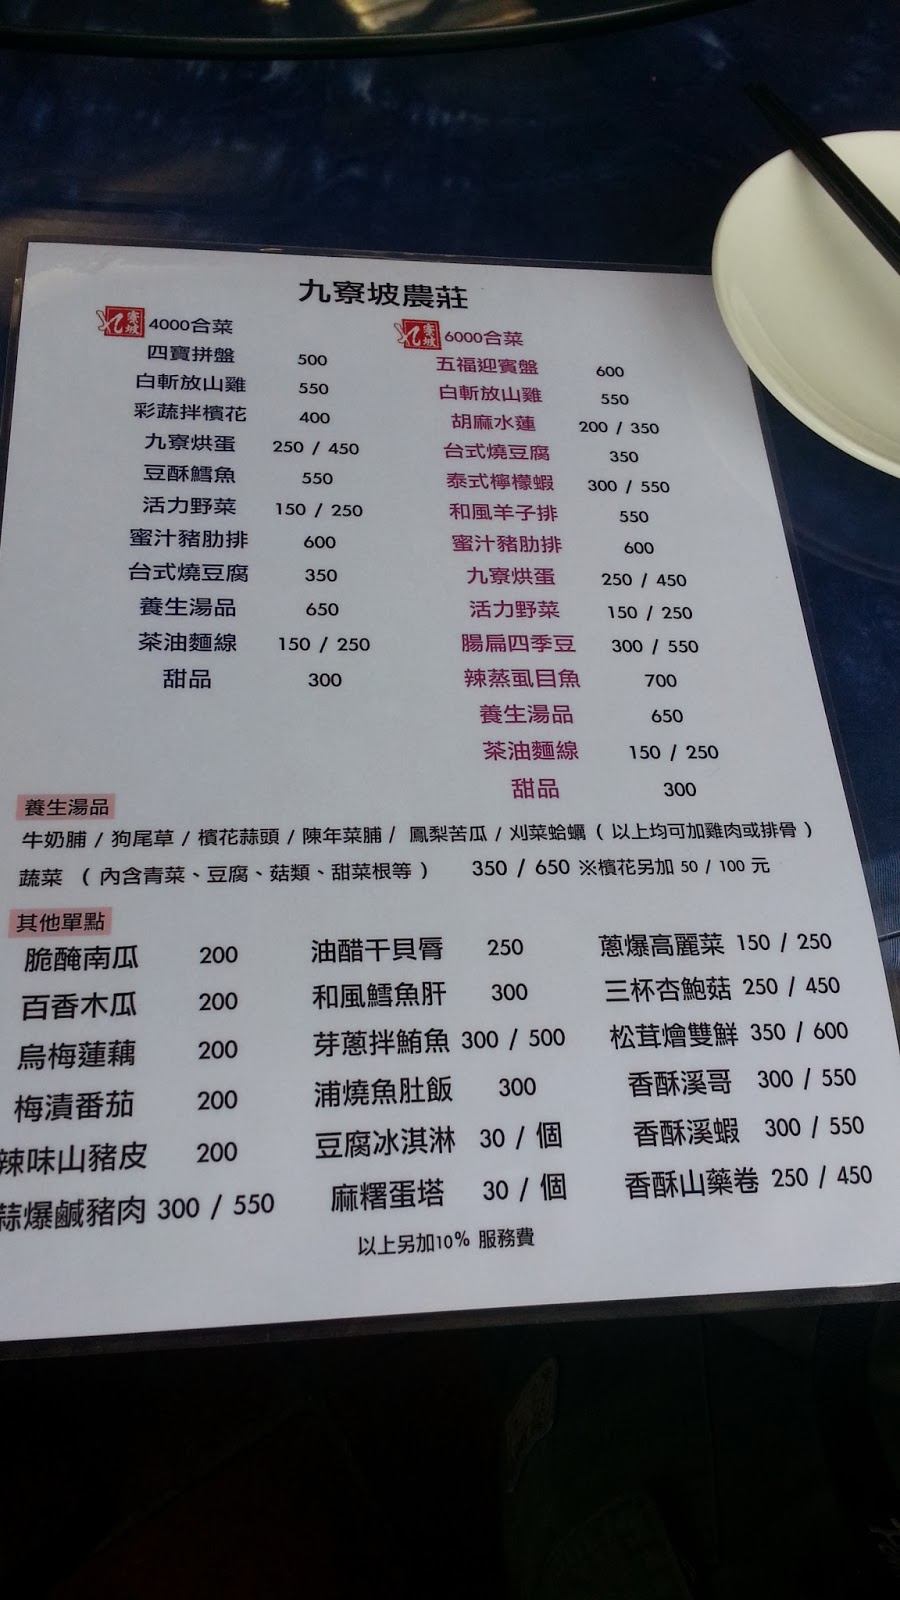 九寮坡農莊
九寮坡 4000合菜
四寶拼盤 500
白斬放山雞 550
彩蔬拌檳花 400
九寮烘蛋 250 / 450
豆酥鱈魚 550
活力野菜 150 / 250
蜜汁豬肋排 600
台式燒豆腐 350
養生湯品 650
茶油麵線 150 / 250
甜品 300
九寮坡 6000合菜
五福迎賓盤 600
白斬放山雞 550
胡麻水蓮 200 / 350
台式燒豆腐 350
泰式檸檬蝦 300 / 550
和風羊子排 550
蜜汁豬肋排 600
九寮烘蛋 250 / 450
活力野菜 150 / 250
腸扁四季豆 300 / 550
辣蒸虱目魚 700
養生湯品 650
茶油麵線 150 / 250
甜品 300
養生湯品
牛奶脯 / 狗尾草 / 檳花蒜頭 / 陳年菜脯 / 鳳梨苦瓜 / 刈菜蛤蠣 ( 以上均可加雞肉或排骨 )
蔬菜 ( 內含青菜、豆腐、菇類、甜菜根等 ) 350 / 650 ※檳花另加 50 / 100 元
其他單點
脆醃南瓜 200 油醋干貝唇 250 蔥爆高麗菜 150 / 250
百香木瓜 200 和風鱈魚肝 300 三杯杏鮑菇 250 / 450
烏梅蓮藕 200 芽蔥拌鮪魚 300 / 500 松茸燴雙鮮 350 / 600
梅漬番茄 200 浦燒魚肚飯 300 香酥溪哥 300 / 550
辣味山豬皮 200 豆腐冰淇淋 30 / 個 香酥溪蝦 300 / 550
蒜爆鹹豬肉 300 / 550 麻糬蛋塔 30 / 個 香酥山藥卷 250 / 450
以上另加10% 服務費